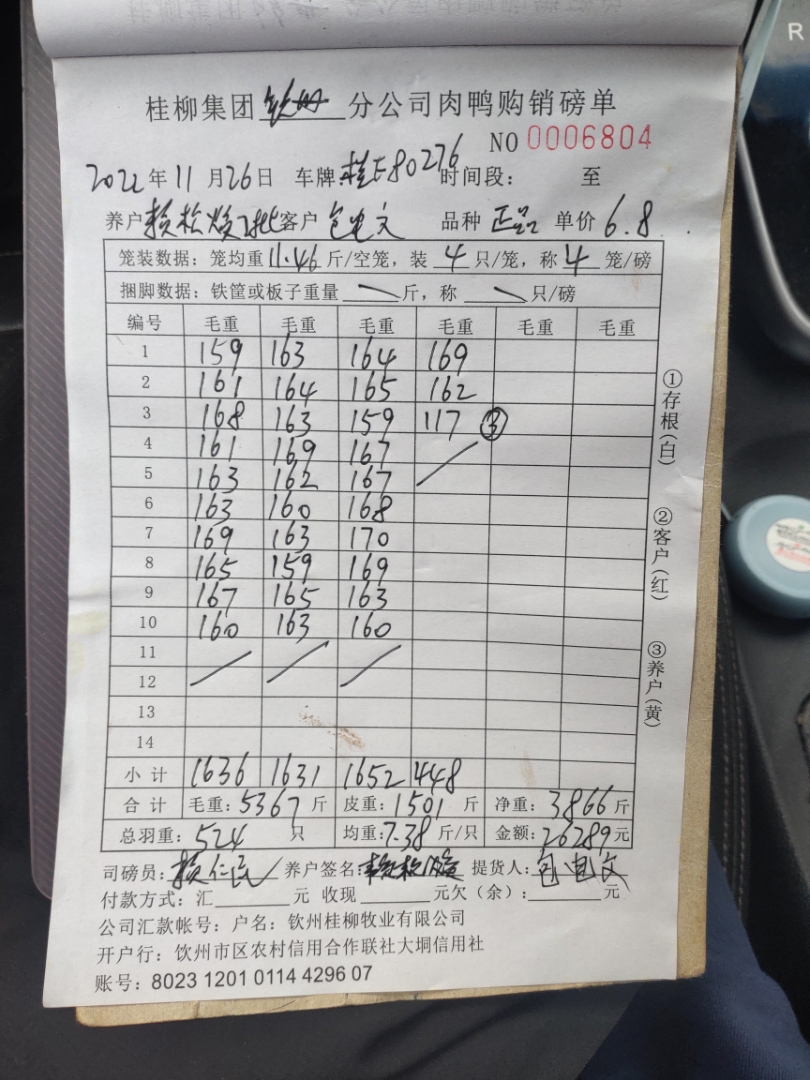 桂柳集团 钦州 分公司肉鸭购销磅单
NO 0006804
2022年11月26日 车牌:桂E80276 时间段: 至
养户 赖松焕 客户 包电文 品种 正品 单价 6.8
笼装数据:笼均重11.46斤/空笼,装4只/笼,称4笼/磅
捆脚数据:铁筐或板子重量 斤,称 只/磅
编号 毛重 毛重 毛重 毛重 毛重 毛重
1 159 163 164 169
2 161 164 165 162
3 168 163 159 117 ③
4 161 169 167
5 163 162 167
6 163 160 168
7 169 163 170
8 165 159 169
9 167 165 163
10 160 163 160
11
12
13
14
小计 1636 1631 1652 448
合计 毛重:5367斤 皮重:1501斤 净重:3866斤
总羽重:524只 均重:7.38斤/只 金额:26289元
司磅员:赖仁民 养户签名:赖松焕 提货人:包电文
付款方式:汇 元 收现 元欠(余): 元
公司汇款帐号:户名:钦州桂柳牧业有限公司
开户行:饮州市区农村信用合作联社大垌信用社
账号:8023 1201 0114 4296 07
①存根(白)
②客户(红)
③养户(黄)
R